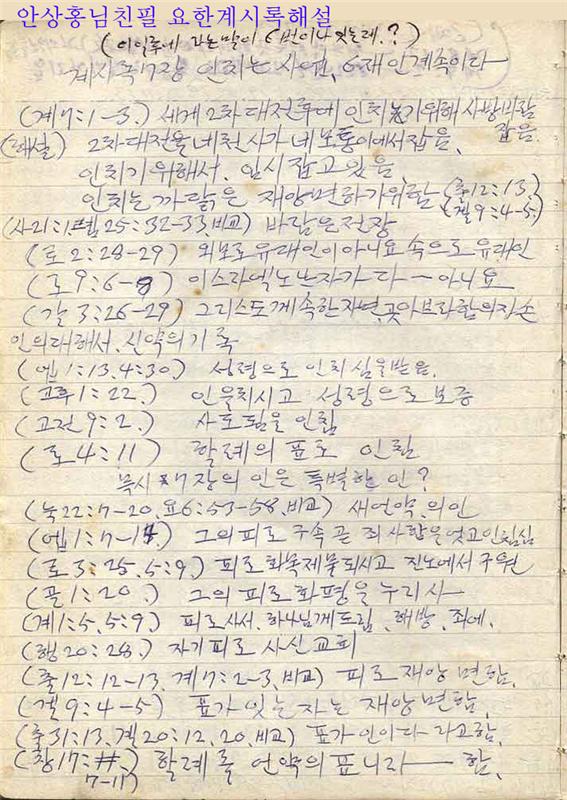 안상홍님친필 요한계시록해설
(이 이루에 라는말이 6번이나 있는데.?)
계시록 7장 인치는 사업, 6재인계속이다
(계7:1-3.) 세계 2차대전후에 인치기위해 사방바람 잡음.
(해설) 2차대전을 네천사가 네모퉁이에서 잡음.
인치기 위해서, 임시 잡고 있음.
인치는 까닭은 재앙면하기위함 (출12:13.)
(겔9:4-5.)
25:32-33, 비교) 바람은 전쟁
(로2:28-29) 외모로 유대인이 아니요 속으로 유대인
(로9:6-8) 이스라엘노 난자가 다ㅡ아니요
(갈3:26-29) 그리스도게 속한자면, 곳 아브라함의 자손
인의 대해서, 신약의 기록
(엡1:13, 4:30.) 성령으로 인치심을 받음.
(고후1:22.) 인을치시고 성령으로 보증
(고전9:2.) 사도됨을 인침
(로4:11) 할례의 표로 인침
묵시 7장의 인은 특별한 인?
(눅22:7-20, 요6:53-58, 비교) 새언약, 의 인
(엡1:7-14.) 그의 피로 구속 곧 죄사함을 엇고 인침심
(로3:25, 5:9.) 피로 화목제물되시고 진노에서 구원
(골1:20.) 그의 피로 화평을 누리사ㅡ
(계1:5, 5:9.) 피로 사서, 하나님게 드림, 해방, 죄에.
(행20:28.) 자기 피로 사신 교회
(출12:12-13, 계7:2-3, 비교) 피로 재앙 면함.
(겔9:4-5) 표가 잇는 자는 재앙 면함.
(출31:13, 겔20:12, 20, 비교) 표가 인이다 라고함.
(창17: 7-11) 할례를 언약의 표니라ㅡ 함.